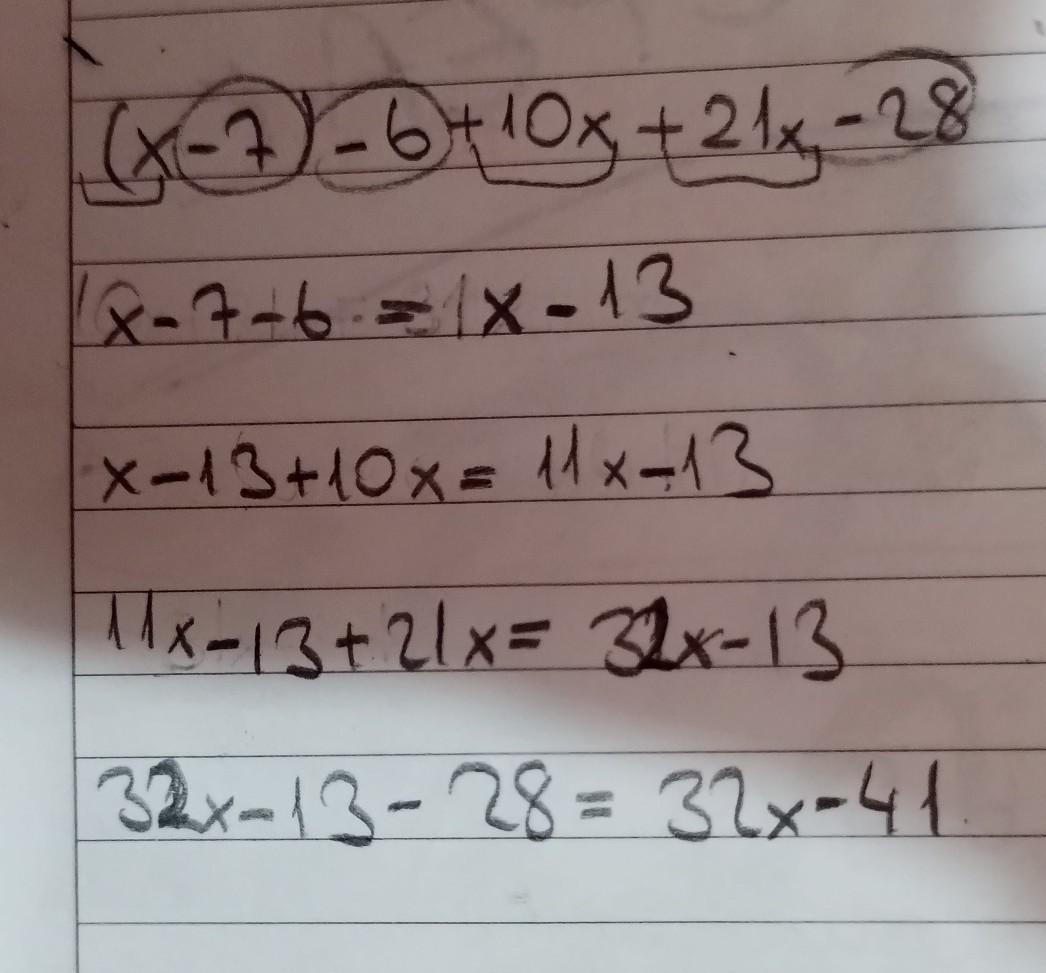 (x-7)-6+10x+21x-28
1x-7-6=1x-13
x-13+10x=11x-13
11x-13+21x=32x-13
32x-13-28=32x-41